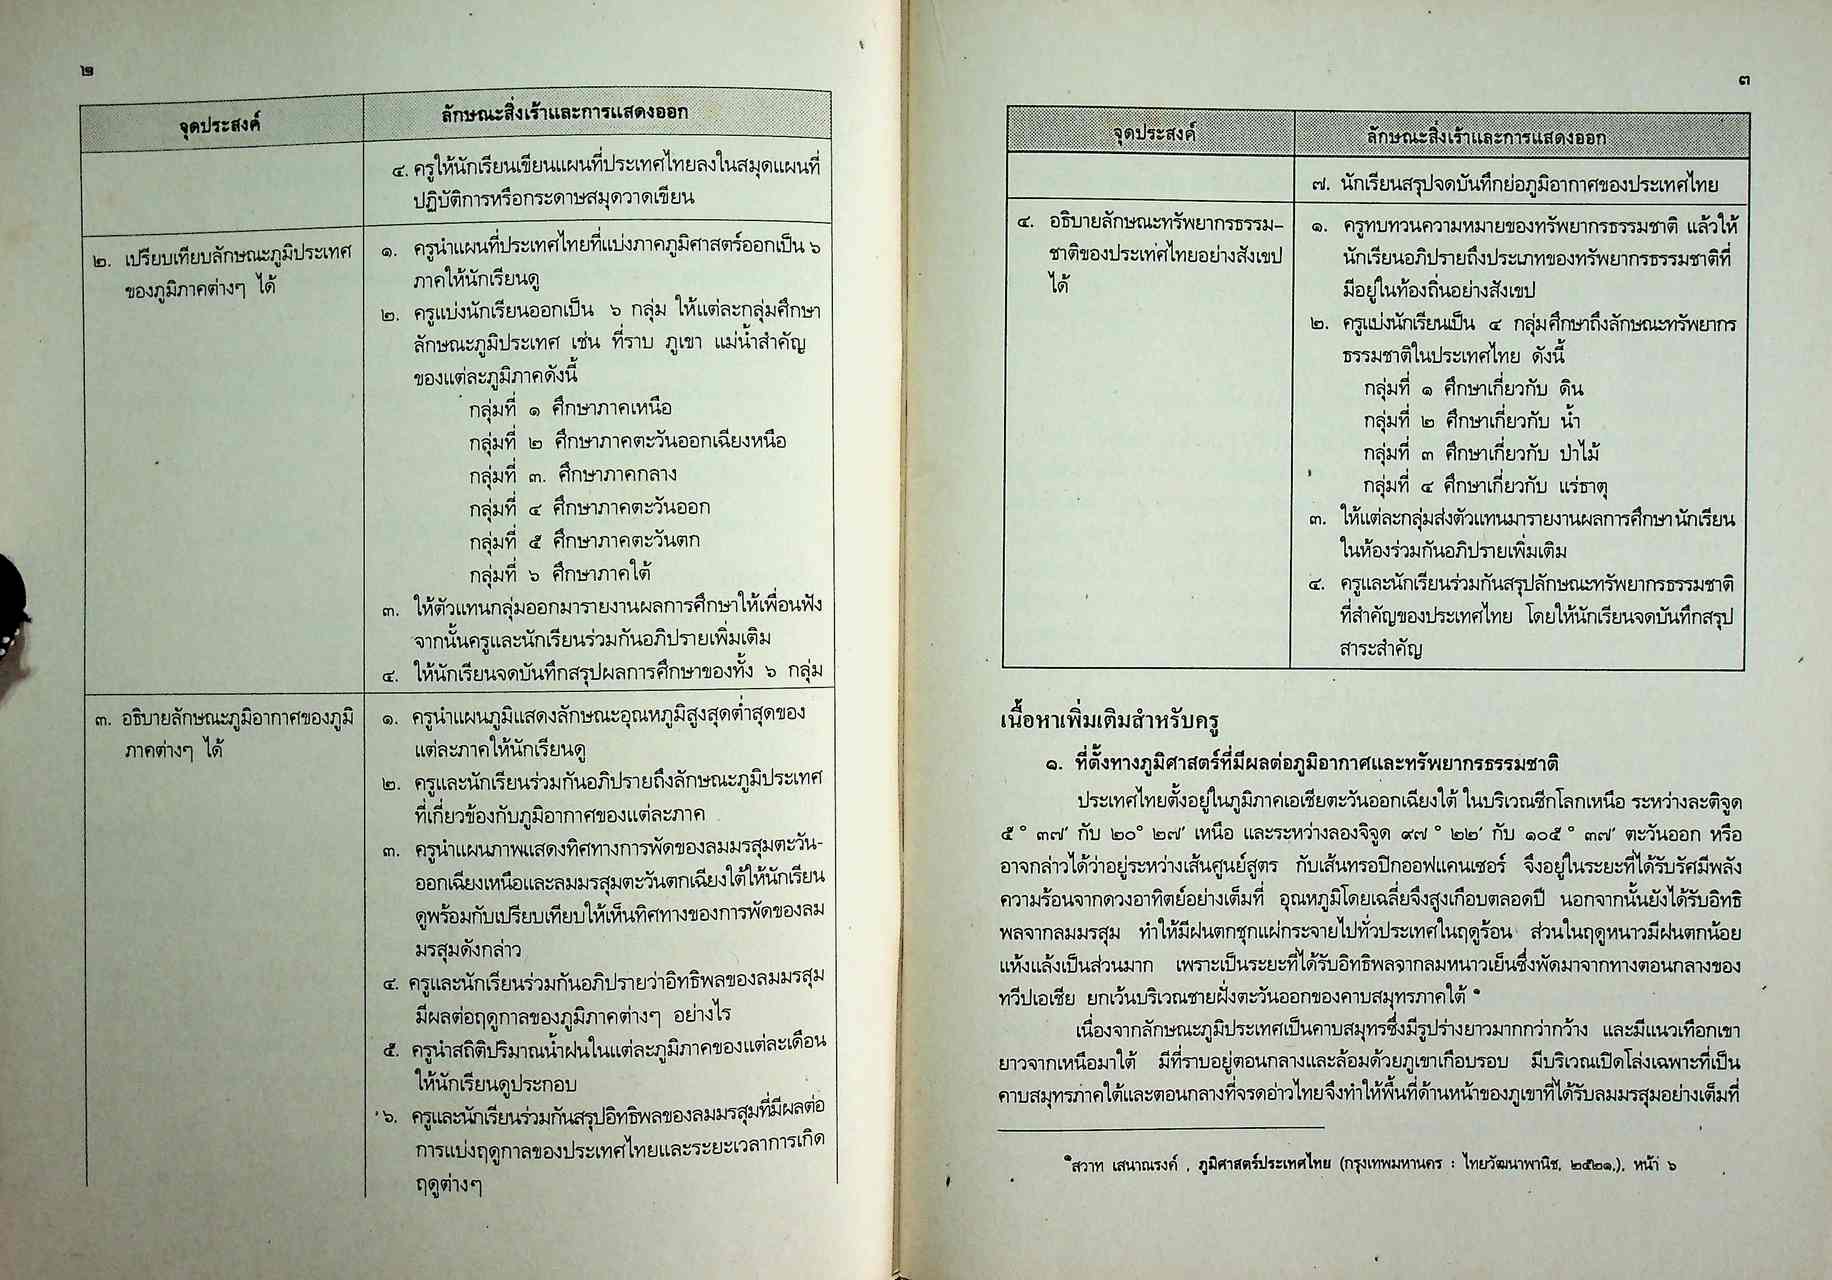 ๒
จุดประสงค์
ลักษณะสิ่งเร้าและการแสดงออก
๔. ครูให้นักเรียนเขียนแผนที่ประเทศไทยลงในสมุดแผนที่
ปฏิบัติการหรือกระดาษสมุดวาดเขียน
๒. เปรียบเทียบลักษณะภูมิประเทศ
ของภูมิภาคต่างๆ ได้
๑. ครูนำแผนที่ประเทศไทยที่แบ่งภาคภูมิศาสตร์ออกเป็น ๖
ภาคให้นักเรียนดู
๒. ครูแบ่งนักเรียนออกเป็น ๖ กลุ่ม ให้แต่ละกลุ่มศึกษา
ลักษณะภูมิประเทศ เช่น ที่ราบ ภูเขา แม่น้ำสำคัญ
ของแต่ละภูมิภาคดังนี้
กลุ่มที่ ๑ ศึกษาภาคเหนือ
กลุ่มที่ ๒ ศึกษาภาคตะวันออกเฉียงหนือ
กลุ่มที่ ๓. ศึกษาภาคกลาง
กลุ่มที่ ๔ ศึกษาภาคตะวันออก
กลุ่มที่ ๕ ศึกษาภาคตะวันตก
กลุ่มที่ ๖ ศึกษาภาคใต้
๓. ให้ตัวแทนกลุ่มออกมารายงานผลการศึกษาให้เพื่อนฟัง
จากนั้นครูและนักเรียนร่วมกันอภิปรายเพิ่มเติม
๔. ให้นักเรียนจดบันทึกสรุปผลการศึกษาของทั้ง ๖ กลุ่ม
๓. อธิบายลักษณะภูมิอากาศของภูมิ
ภาคต่างๆ ได้
๑. ครูนำแผนภูมิแสดงลักษณะอุณหภูมิสูงสุดต่ำสุดของ
แต่ละภาคให้นักเรียนดู
๒. ครูและนักเรียนร่วมกันอภิปรายถึงลักษณะภูมิประเทศ
ที่เกี่ยวข้องกับภูมิอากาศของแต่ละภาค
๓. ครูนำแผนภาพแสดงทิศทางการพัดของลมมรสุมตะวัน-
ออกเฉียงเหนือและลมมรสุมตะวันตกเฉียงใต้ให้นักเรียน
ดูพร้อมกับเปรียบเทียบให้เห็นทิศทางของการพัดของลม
มรสุมดังกล่าว
๔. ครูและนักเรียนร่วมกันอภิปรายว่าอิทธิพลของลมมรสุม
มีผลต่อฤดูกาลของภูมิภาคต่างๆ อย่างไร
๕. ครูนำสถิติปริมาณน้ำฝนในแต่ละภูมิภาคของแต่ละเดือน
ให้นักเรียนดูประกอบ
๖. ครูและนักเรียนร่วมกันสรุปอิทธิพลของลมมรสุมที่มีผลต่อ
การแบ่งฤดูกาลของประเทศไทยและระยะเวลาการเกิด
ฤดูต่างๆ
๓
จุดประสงค์
ลักษณะสิ่งเร้าและการแสดงออก
๗. นักเรียนสรุปจดบันทึกย่อภูมิอากาศของประเทศไทย
๔. อธิบายลักษณะทรัพยากรธรรม–
ชาติของประเทศไทยอย่างสังเขป
ได้
๑. ครูทบทวนความหมายของทรัพยากรธรรมชาติ แล้วให้
นักเรียนอภิปรายถึงประเภทของทรัพยากรธรรมชาติที่
มีอยู่ในท้องถิ่นอย่างสังเขป
๒. ครูแบ่งนักเรียนเป็น ๔ กลุ่มศึกษาถึงลักษณะทรัพยากร
ธรรมชาติในประเทศไทย ดังนี้
กลุ่มที่ ๑ ศึกษาเกี่ยวกับ ดิน
กลุ่มที่ ๒ ศึกษาเกี่ยวกับ น้ำ
กลุ่มที่ ๓ ศึกษาเกี่ยวกับ ป่าไม้
กลุ่มที่ ๔ ศึกษาเกี่ยวกับ แร่ธาตุ
๓. ให้แต่ละกลุ่มส่งตัวแทนมารายงานผลการศึกษา นักเรียน
ในห้องร่วมกันอภิปรายเพิ่มเติม
๔. ครูและนักเรียนร่วมกันสรุปลักษณะทรัพยากรธรรมชาติ
ที่สำคัญของประเทศไทย โดยให้นักเรียนจดบันทึกสรุป
สาระสำคัญ
เนื้อหาเพิ่มเติมสำหรับครู
๑. ที่ตั้งทางภูมิศาสตร์ที่มีผลต่อภูมิอากาศและทรัพยากรธรรมชาติ
ประเทศไทยตั้งอยู่ในภูมิภาคเอเชียตะวันออกเฉียงใต้ ในบริเวณซีกโลกเหนือ ระหว่างละติจูด
๕° ๓๗′ กับ ๒๐° ๒๗′ เหนือ และระหว่างลองจิจูด ๙๗° ๒๒′ กับ ๑๐๕° ๓๗′ ตะวันออก หรือ
อาจกล่าวได้ว่าอยู่ระหว่างเส้นศูนย์สูตร กับเส้นทรอปิกออฟแคนเซอร์ จึงอยู่ในระยะที่ได้รับรัศมีพลัง
ความร้อนจากดวงอาทิตย์อย่างเต็มที่ อุณหภูมิโดยเฉลี่ยจึงสูงเกือบตลอดปี นอกจากนั้นยังได้รับอิทธิ
พลจากลมมรสุม ทำให้มีฝนตกชุกแผ่กระจายไปทั่วประเทศในฤดูร้อน ส่วนในฤดูหนาวมีฝนตกน้อย
แห้งแล้งเป็นส่วนมาก เพราะเป็นระยะที่ได้รับอิทธิพลจากลมหนาวเย็นซึ่งพัดมาจากทางตอนกลางของ
ทวีปเอเชีย ยกเว้นบริเวณชายฝั่งตะวันออกของคาบสมุทรภาคใต้ ๑
เนื่องจากลักษณะภูมิประเทศเป็นคาบสมุทรซึ่งมีรูปร่างยาวมากกว่ากว้าง และมีแนวเทือกเขา
ยาวจากเหนือมาใต้ มีที่ราบอยู่ตอนกลางและล้อมด้วยภูเขาเกือบรอบ มีบริเวณเปิดโล่งเฉพาะที่เป็น
คาบสมุทรภาคใต้และตอนกลางที่จรดอ่าวไทยจึงทำให้พื้นที่ด้านหน้าของภูเขาที่ได้รับลมมรสุมอย่างเต็มที่
๑สวาท เสนาณรงค์ , ภูมิศาสตร์ประเทศไทย (กรุงเทพมหานคร : ไทยวัฒนาพานิช, ๒๕๒๑,), หน้า ๖